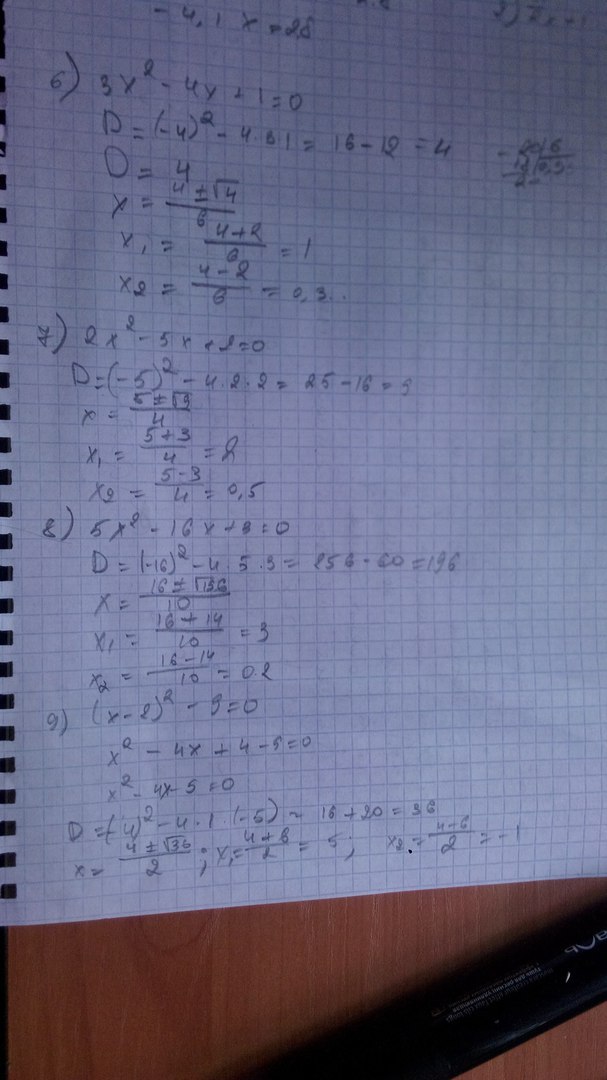 - 4,1 x = 28
6) 3x² - 4x + 1 = 0
D = (-4)² - 4·3·1 = 16 - 12 = 4
D = 4
x = (4 ± √4)/6
x₁ = (4+2)/6 = 1
x₂ = (4-2)/6 = 0,3..
7) 2x² - 5x + 2 = 0
D = (-5)² - 4·2·2 = 25 - 16 = 9
x = (5 ± √9)/4
x₁ = (5+3)/4 = 2
x₂ = (5-3)/4 = 0,5
8) 5x² - 16x + 3 = 0
D = (-16)² - 4·5·3 = 256 - 60 = 196
x = (16 ± √196)/10
x₁ = (16+14)/10 = 3
x₂ = (16-14)/10 = 0.2
9) (x-2)² - 9 = 0
x² - 4x + 4 - 9 = 0
x² - 4x - 5 = 0
D = (-4)² - 4·1·(-5) = 16 + 20 = 36
x = (4 ± √36)/2 ; x₁ = (4+6)/2 = 5; x₂ = (4-6)/2 = -1